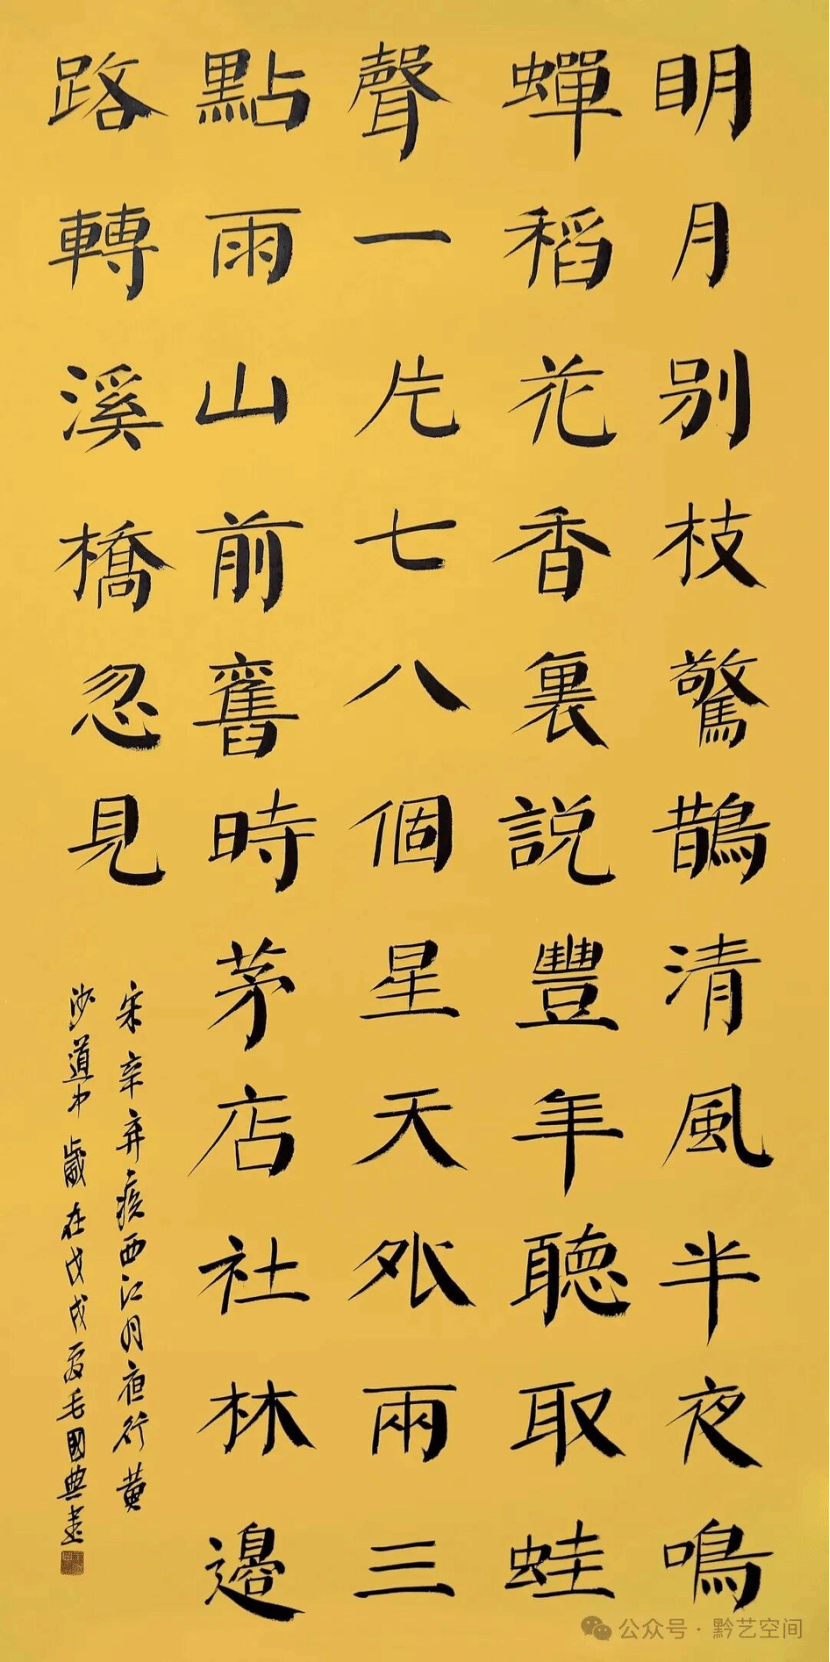 明月别枝驚鵲清風半夜鳴
蟬稻花香裏説豐年聽取蛙
聲一片七八個星天外兩三
點雨山前舊時茅店社林邊
路轉溪橋忽見
宋辛弃疾西江月夜行黄
沙道中歲在戊戌夏毛國典書
公众号·黔艺空间